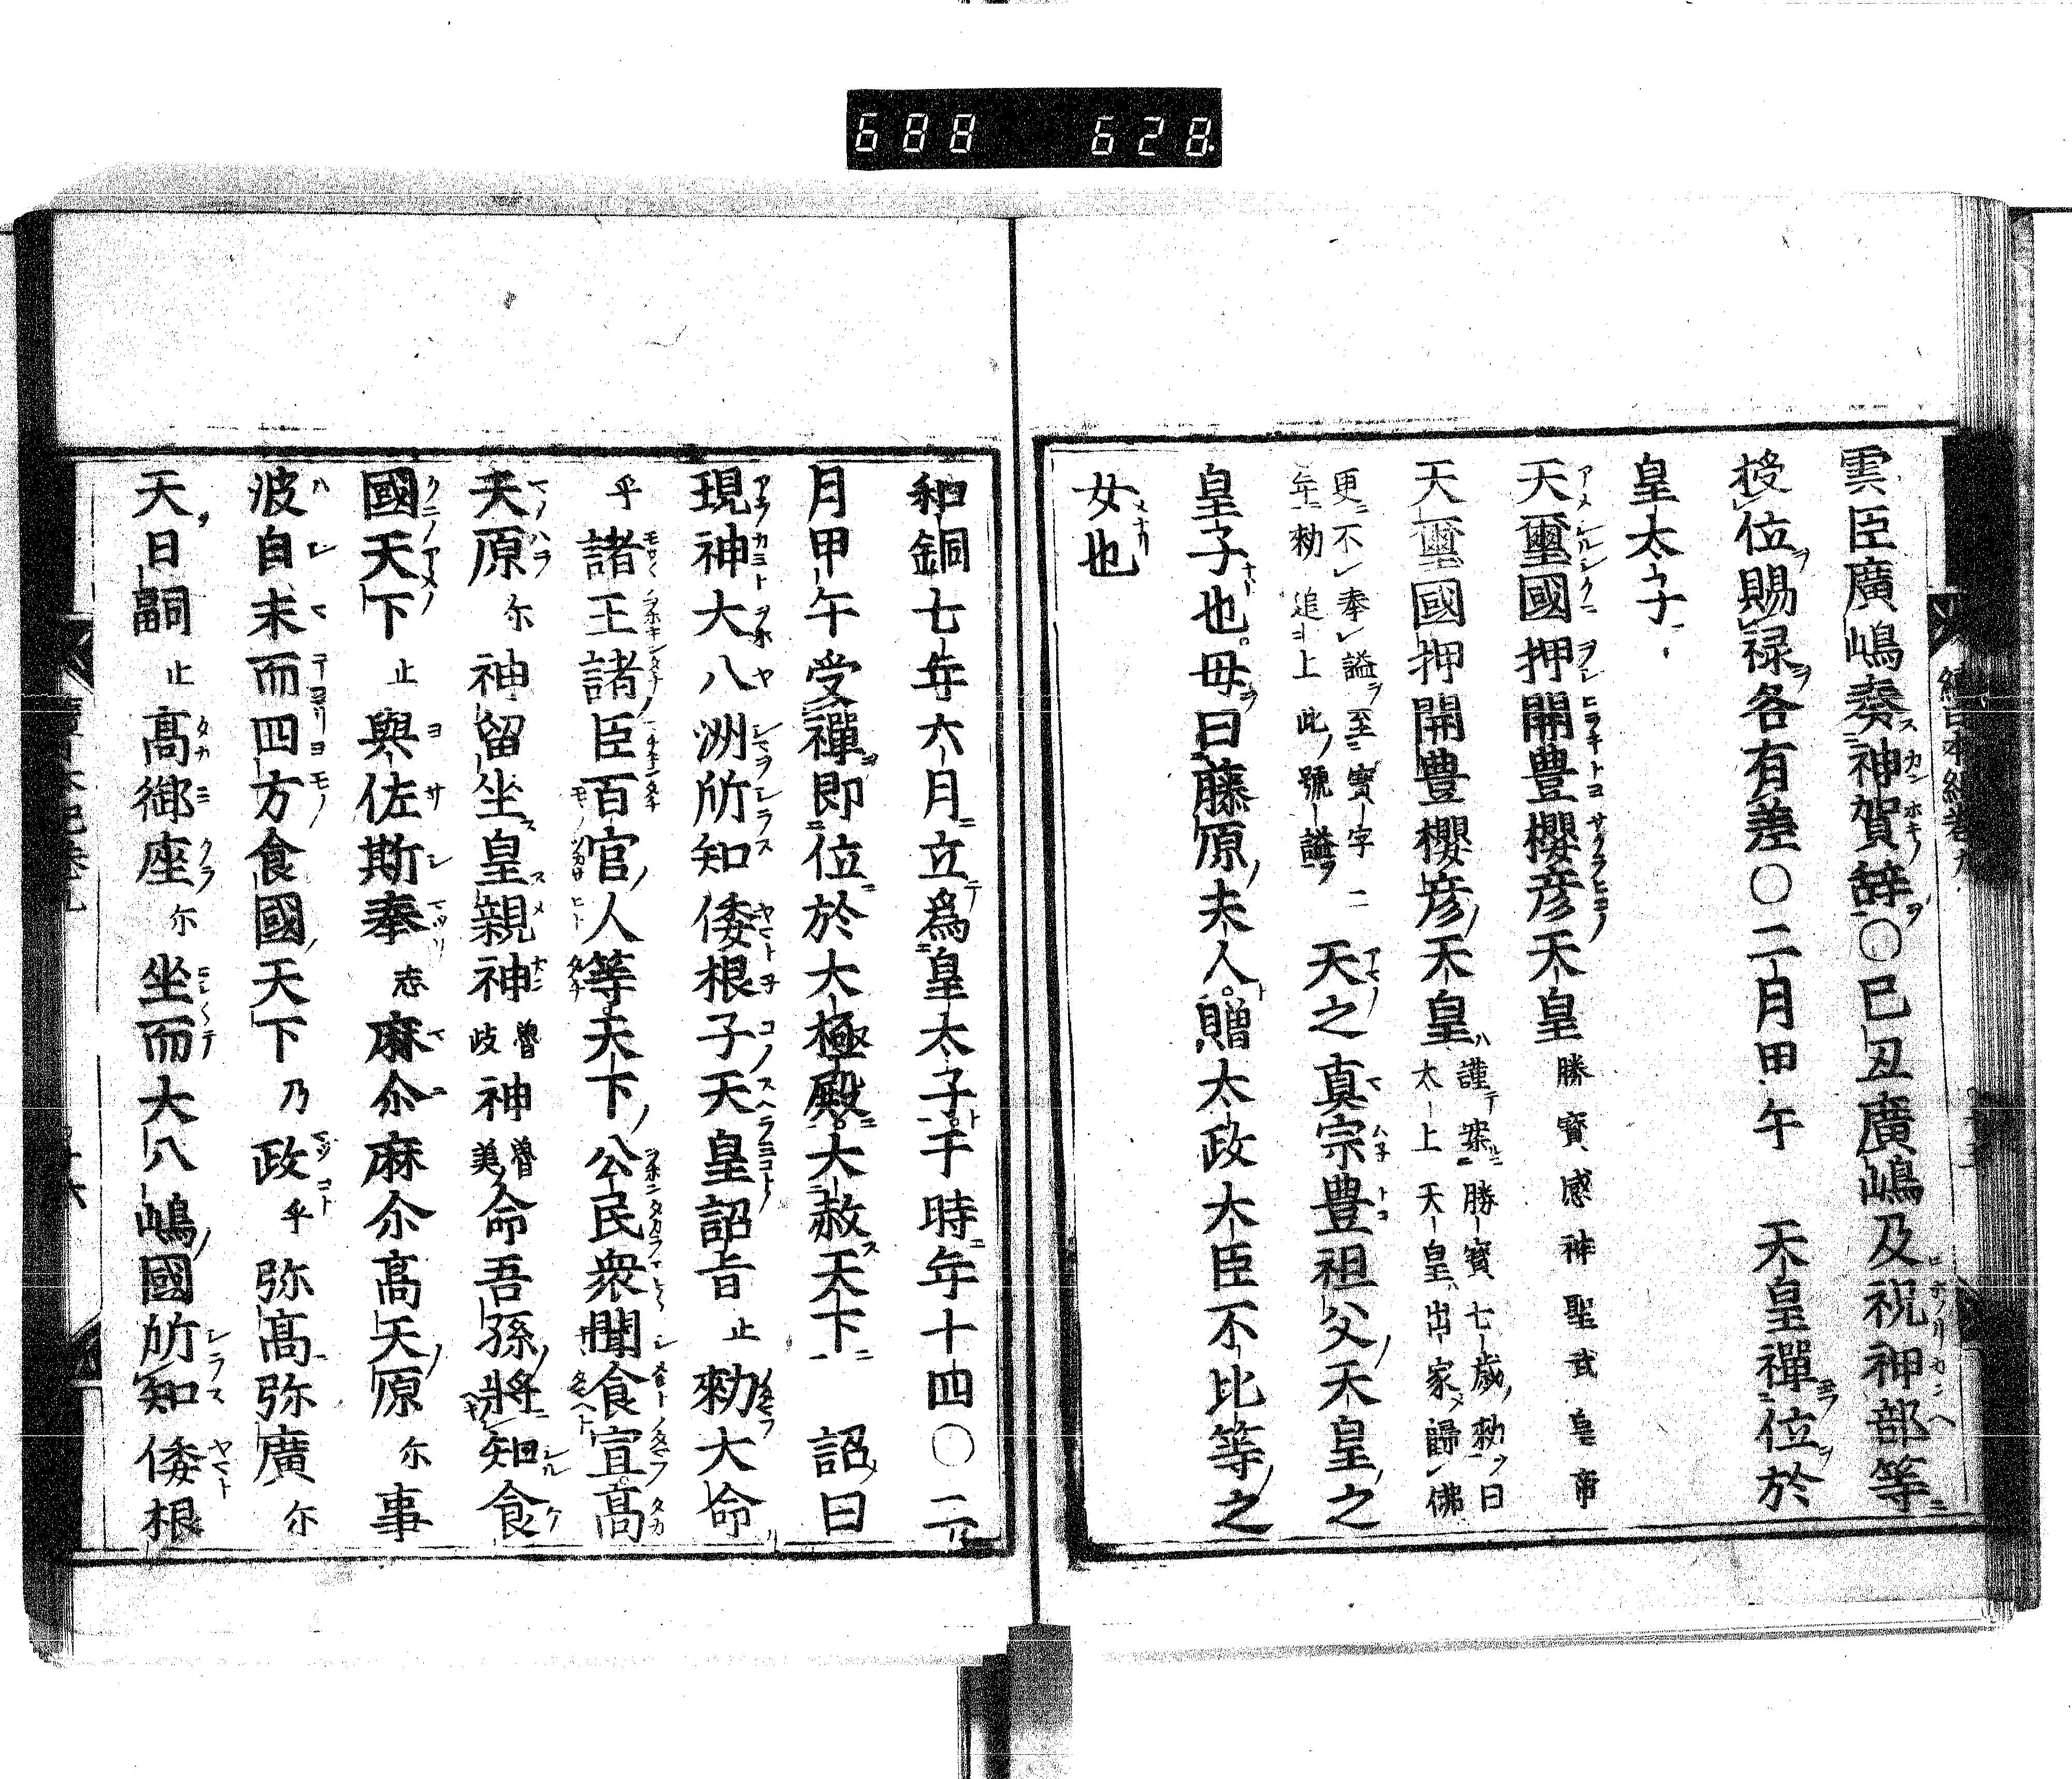 688 628.
雲臣廣嶋奏神賀辭〇已丑廣嶋及祝神部等
授位賜禄各有差〇二月甲午 天皇禪位於
皇太子
天璽國押開豊櫻彦天皇 勝寳感神聖武皇帝
天璽國押開豊櫻彦天皇 謹案勝寳七歳勅曰
太上天皇出家歸佛
更不奉謚至寳字二
年勅追上此號謚 天之真宗豊祖父天皇之
皇子也母曰藤原夫人贈太政大臣不比等之
女也
和銅七年六月立爲皇太子于時年十四〇二
月甲午受禪即位於大極殿大赦天下 詔曰
現神大八洲所知倭根子天皇詔旨止勅大命
乎諸王諸臣百官人等天下公民衆聞食宣高
天原尓神留坐皇親神魯岐神魯美命吾孫將知食
國天下止與佐斯奉志麻尓麻尓高天原尓事
波自末而四方食國天下乃政乎弥高弥廣尓
天日嗣止高御座尓坐而大八嶋國所知倭根